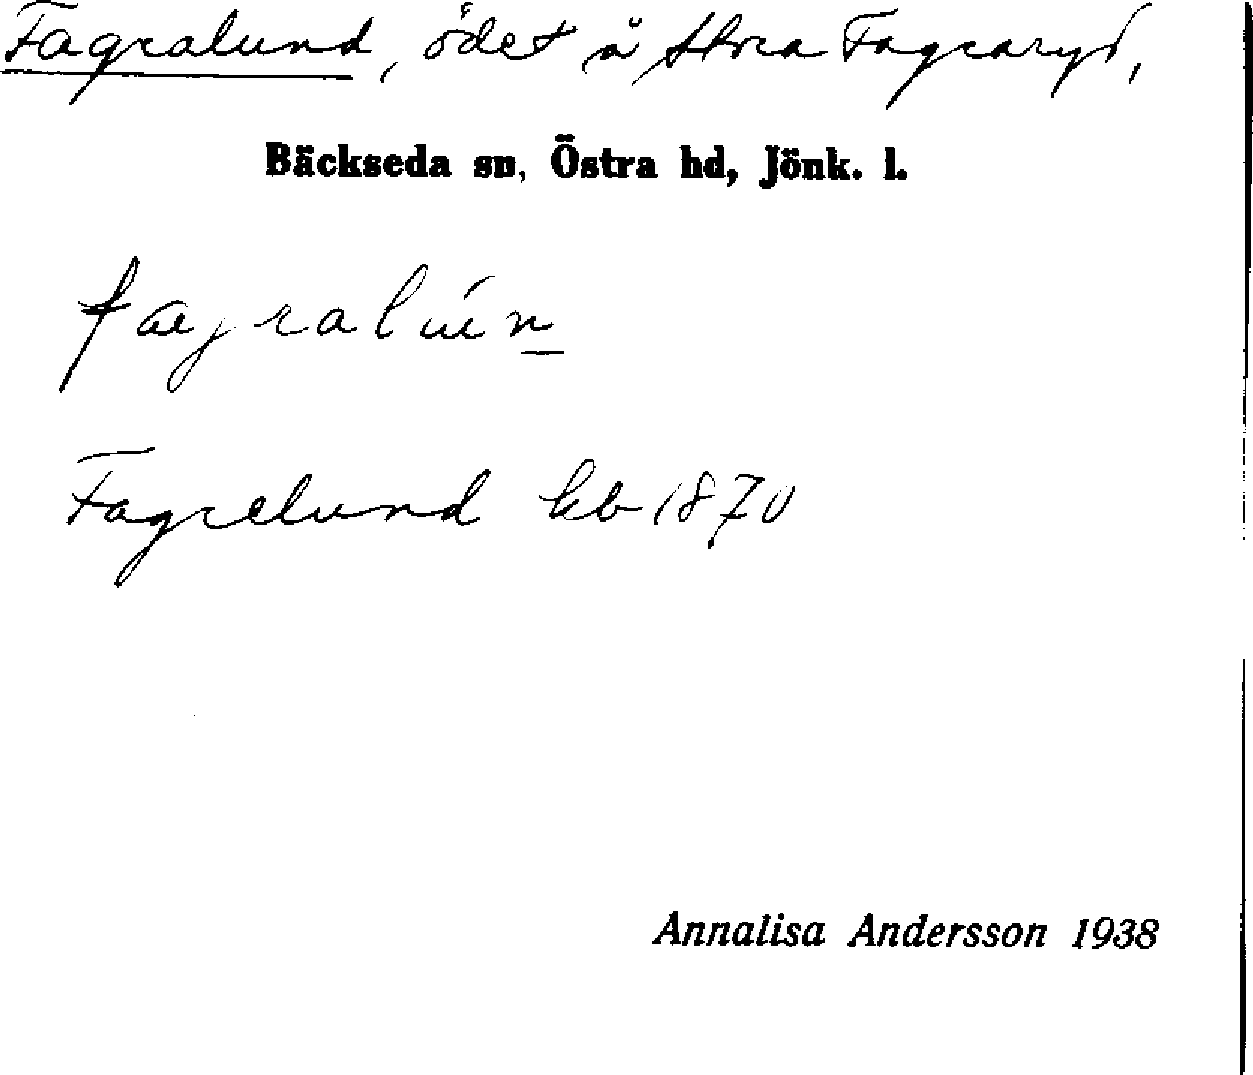 Fagralund, ödet å Stora Fagraryd,
Bäckseda sn, Östra hd, Jönk. l.
fagralún
Fagrelund kb 1870
Annalisa Andersson 1938